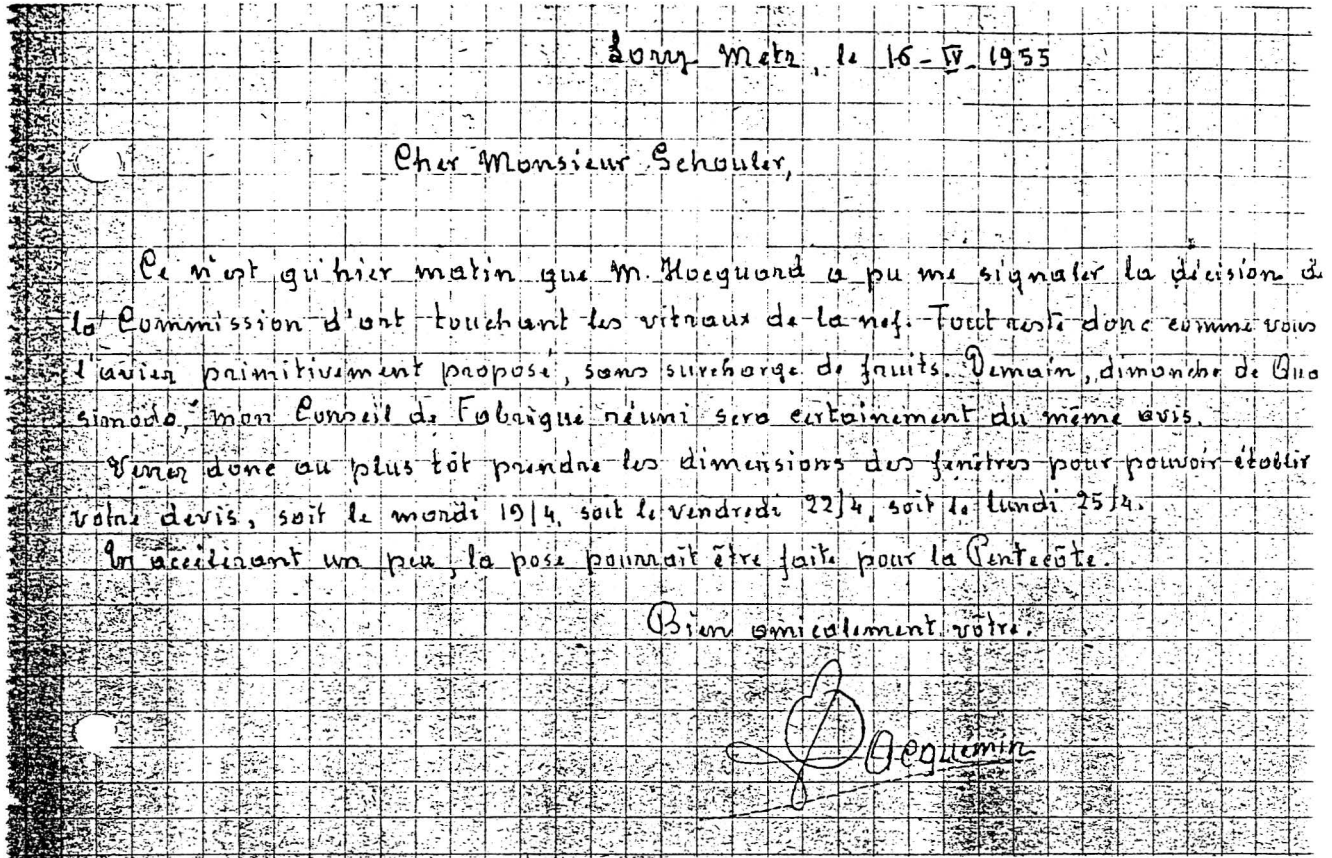 Lorry Metz, le 16-IV-1955
Cher Monsieur Schouler,
Ce n'est qu'hier matin que M. Hocquard a pu me signaler la décision de
la Commission d'art touchant les vitraux de la nef. Tout reste donc comme vous
l'aviez primitivement proposé, sans surcharge de fruits. Demain, dimanche de Qua
simodo, mon Conseil de Fabrique réuni sera certainement du même avis.
Venez donc au plus tôt prendre les dimensions des fenêtres pour pouvoir établir
votre devis, soit le mardi 19/4, soit le vendredi 22/4, soit le lundi 25/4.
En accélérant un peu, la pose pourrait être faite pour la Pentecôte.
Bien amicalement vôtre.
Jacquemin